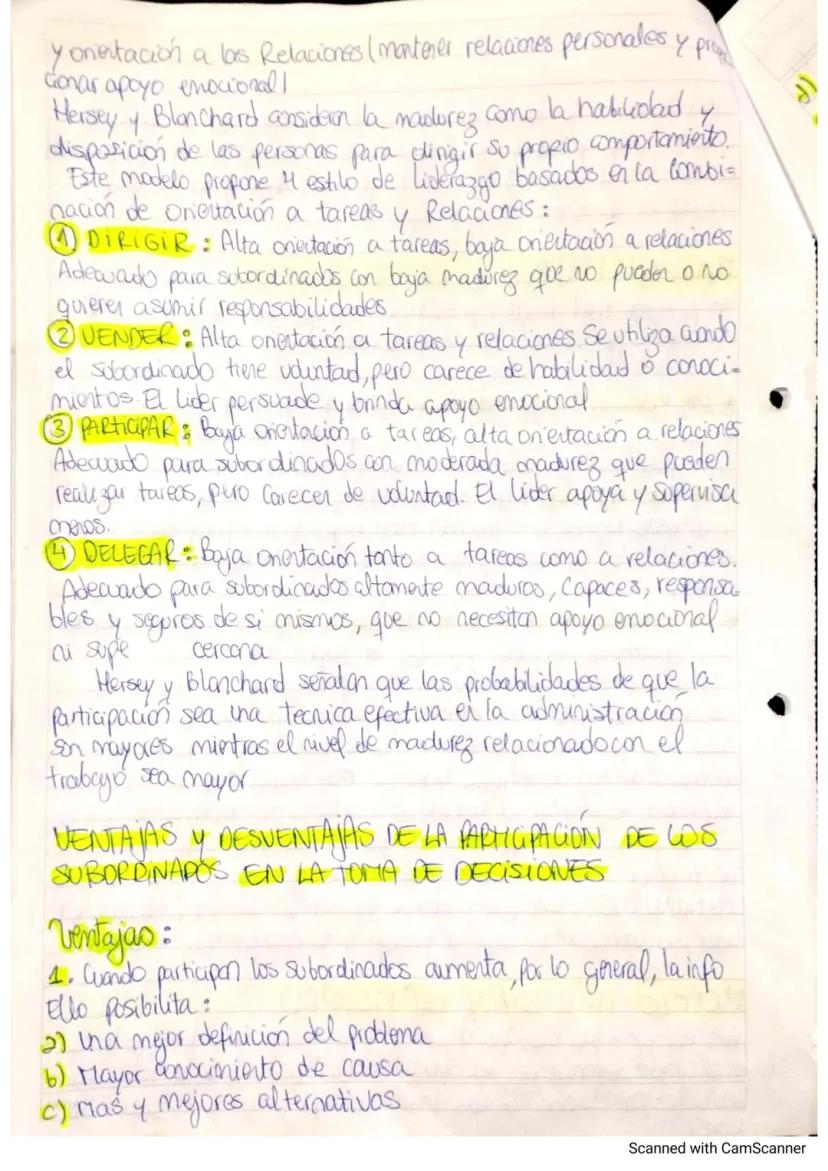 y orientación a las Relaciones (mantener relaciones personales y propor
cionar apoyo emocional)
Hersey y Blanchard consideran la madurez como la habilidad y
disposición de las personas para dirigir su propio comportamiento.
Este modelo propone 4 estilo de liderazgo basados en la combi=
nación de orientación a tareas y Relaciones:
① DIRIGIR: Alta orientación a tareas, baja orientación a relaciones
Adecuado para subordinados con baja madurez que no pueden o no
quieren asumir responsabilidades
② VENDER: Alta orientación a tareas y relaciones. Se utiliza cuando
el subordinado tiene voluntad, pero carece de habilidad o conoci=
mientos. El lider persuade y brinda apoyo emocional
③ PARTICIPAR: Baja orientación a tareas, alta orientación a relaciones
Adecuado para subordinados con moderada madurez que pueden
realizar tareas, pero carecen de voluntad. El lider apoya y supervisa
menos.
④ DELEGAR: Baja orientación tanto a tareas como a relaciones.
Adecuado para subordinados altamente maduros, capaces, responsa-
bles y seguros de si mismos, que no necesitan apoyo emocional
ni supe cercana
Hersey y Blanchard señalan que las probabilidades de que la
participación sea una tecnica efectiva en la administración
son mayores mientras el nivel de madurez relacionado con el
trabajo sea mayor
VENTAJAS y DESVENTAJAS DE LA PARTICIPACIÓN DE LOS
SUBORDINADOS EN LA TOMA DE DECISIONES
Ventajas:
1. Cuando participan los subordinados aumenta, por lo general, la info
Ello posibilita:
a) Una mejor definición del problema
b) Mayor conocimiento de causa
c) Mas y mejores alternativas
Scanned with CamScanner